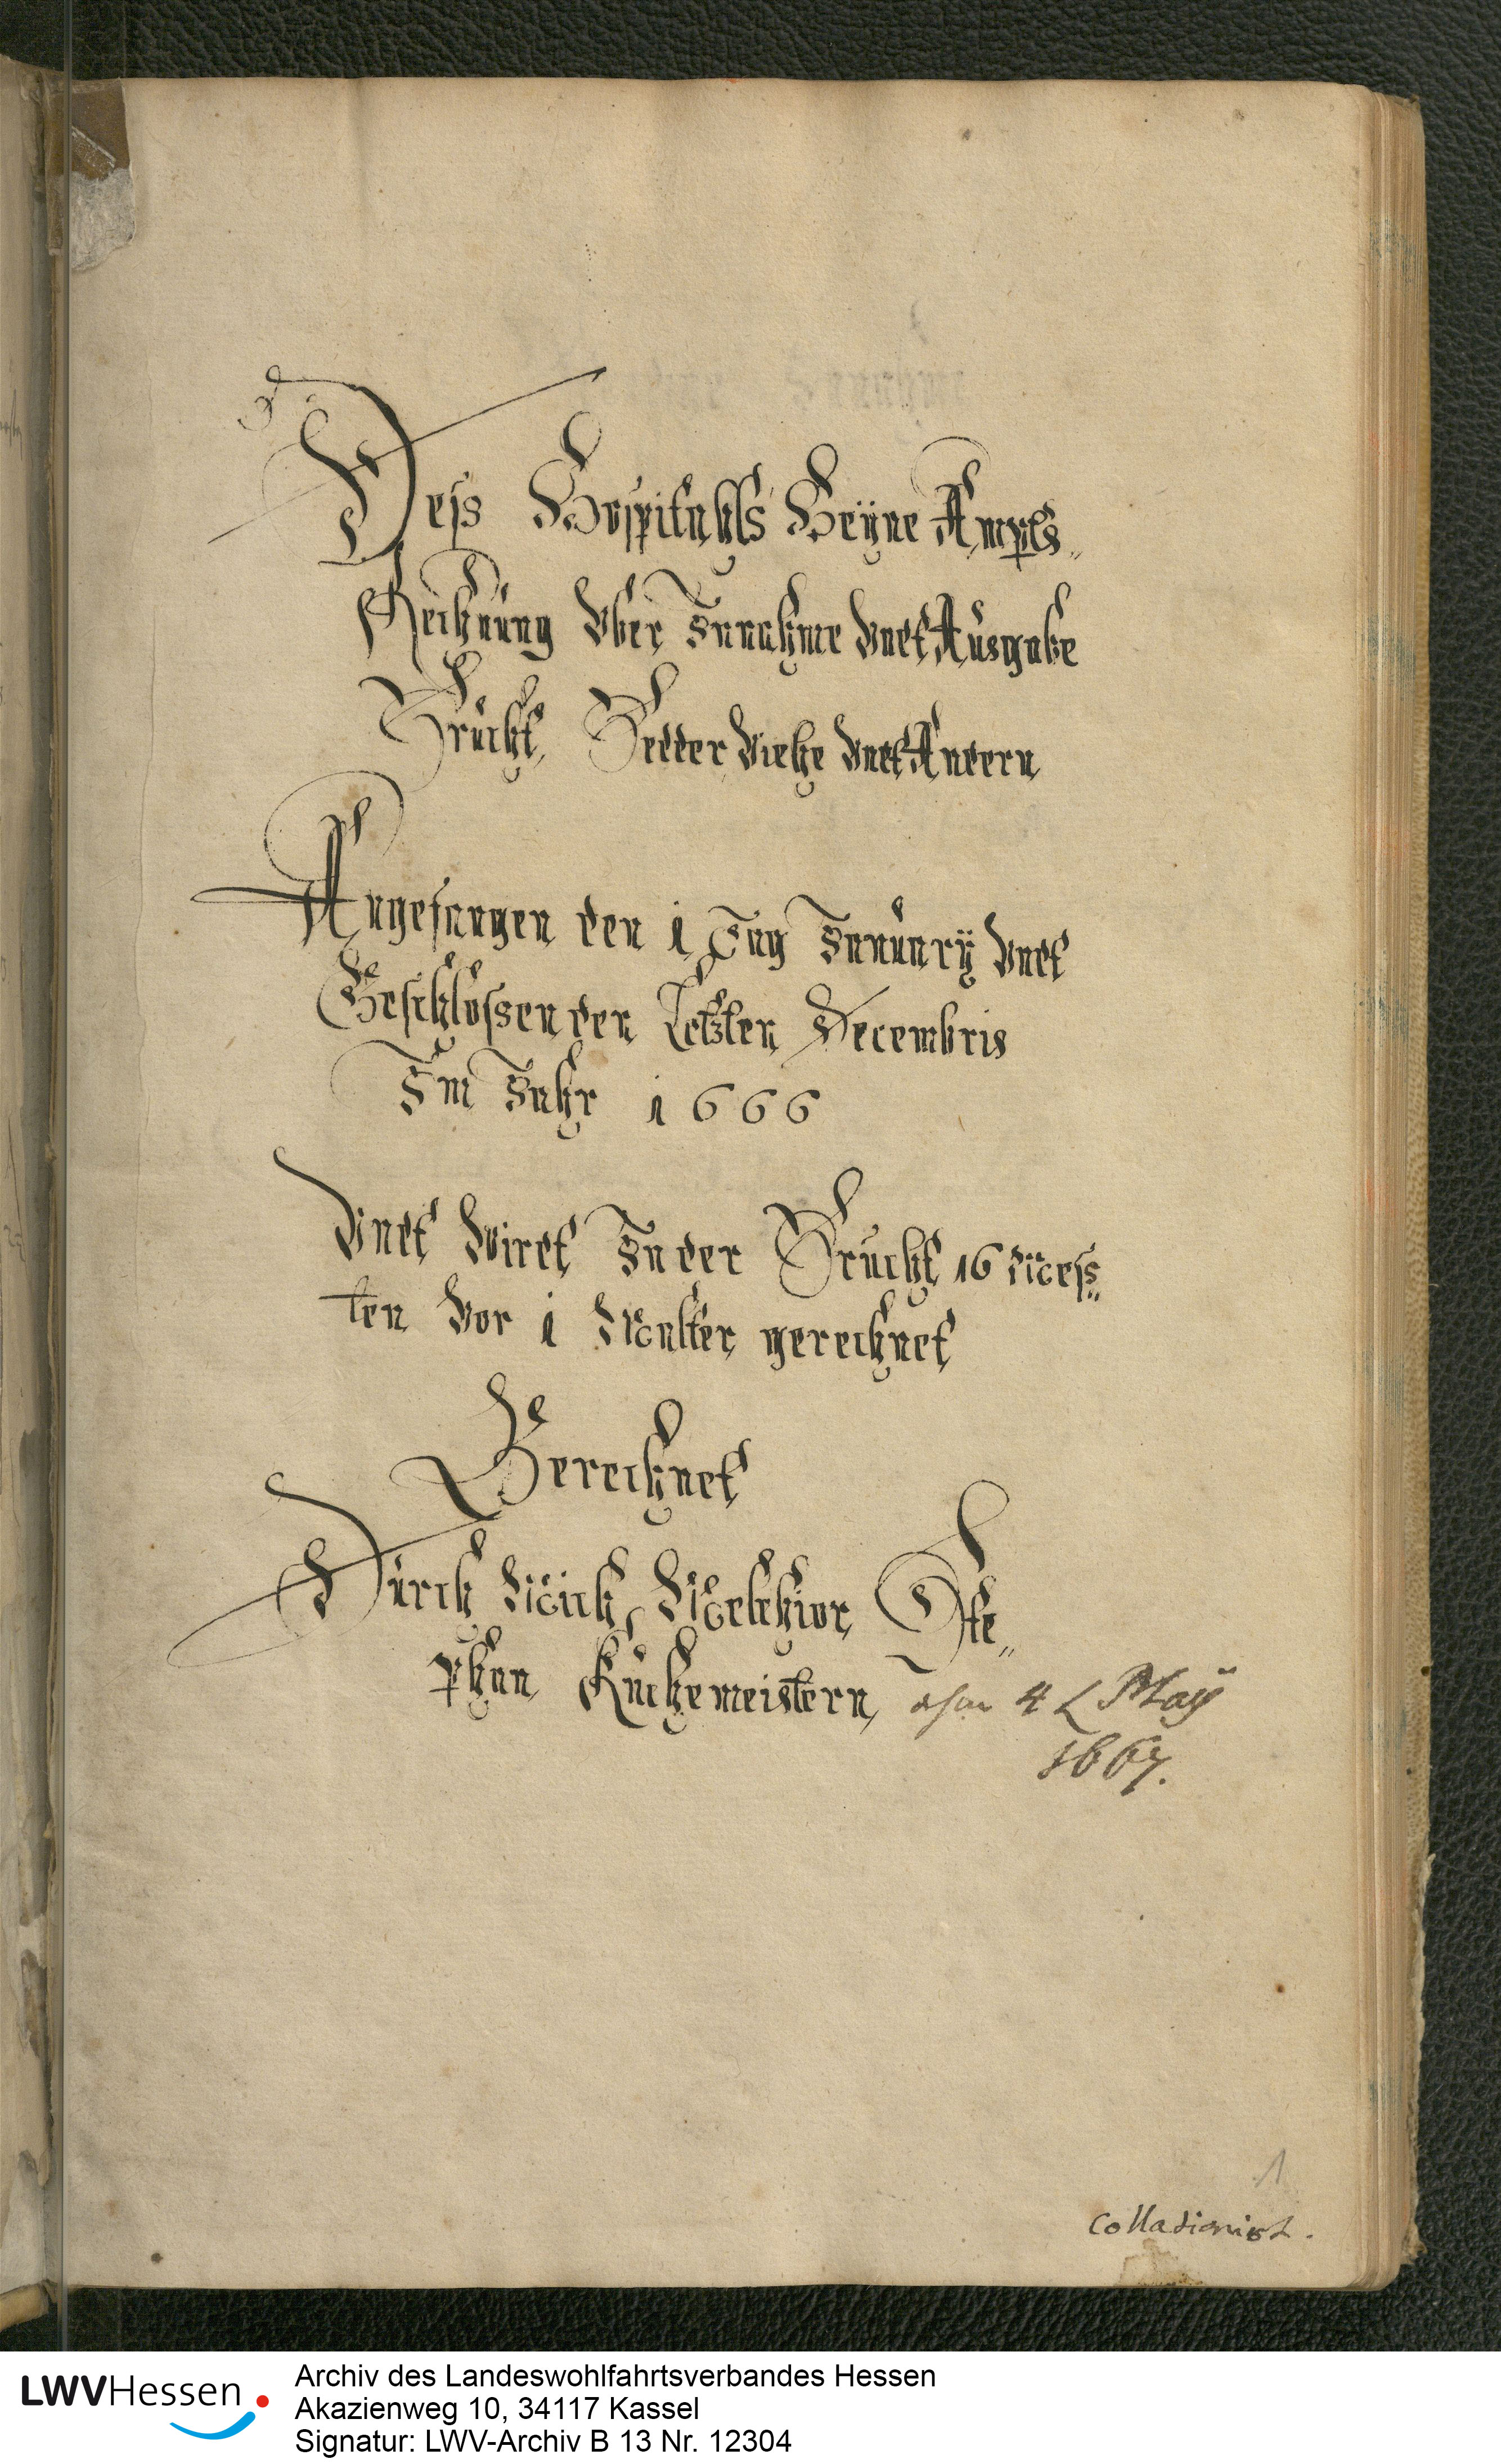 Deß Hospitahls Heÿne Ampts
Rechnung Vber Innahme Vndt Ausgabe
Frücht, Feder Viehe Vndt Andern
Angefangen den 1 Tag Januarÿ Vndt
Geschloßen den Letzten Decembris
Im Jahr 1666
Vndt Wirdt In der Frucht 16 Meß
ten Vor 1 Malter gerechnet
Berechnet
Durch Mich Melchior Ste
phan Kuchemeistern, den 4 Maÿ
1667.
1
Colladionirt.
LWVHessen
Archiv des Landeswohlfahrtsverbandes Hessen
Akazienweg 10, 34117 Kassel
Signatur: LWV-Archiv B 13 Nr. 12304